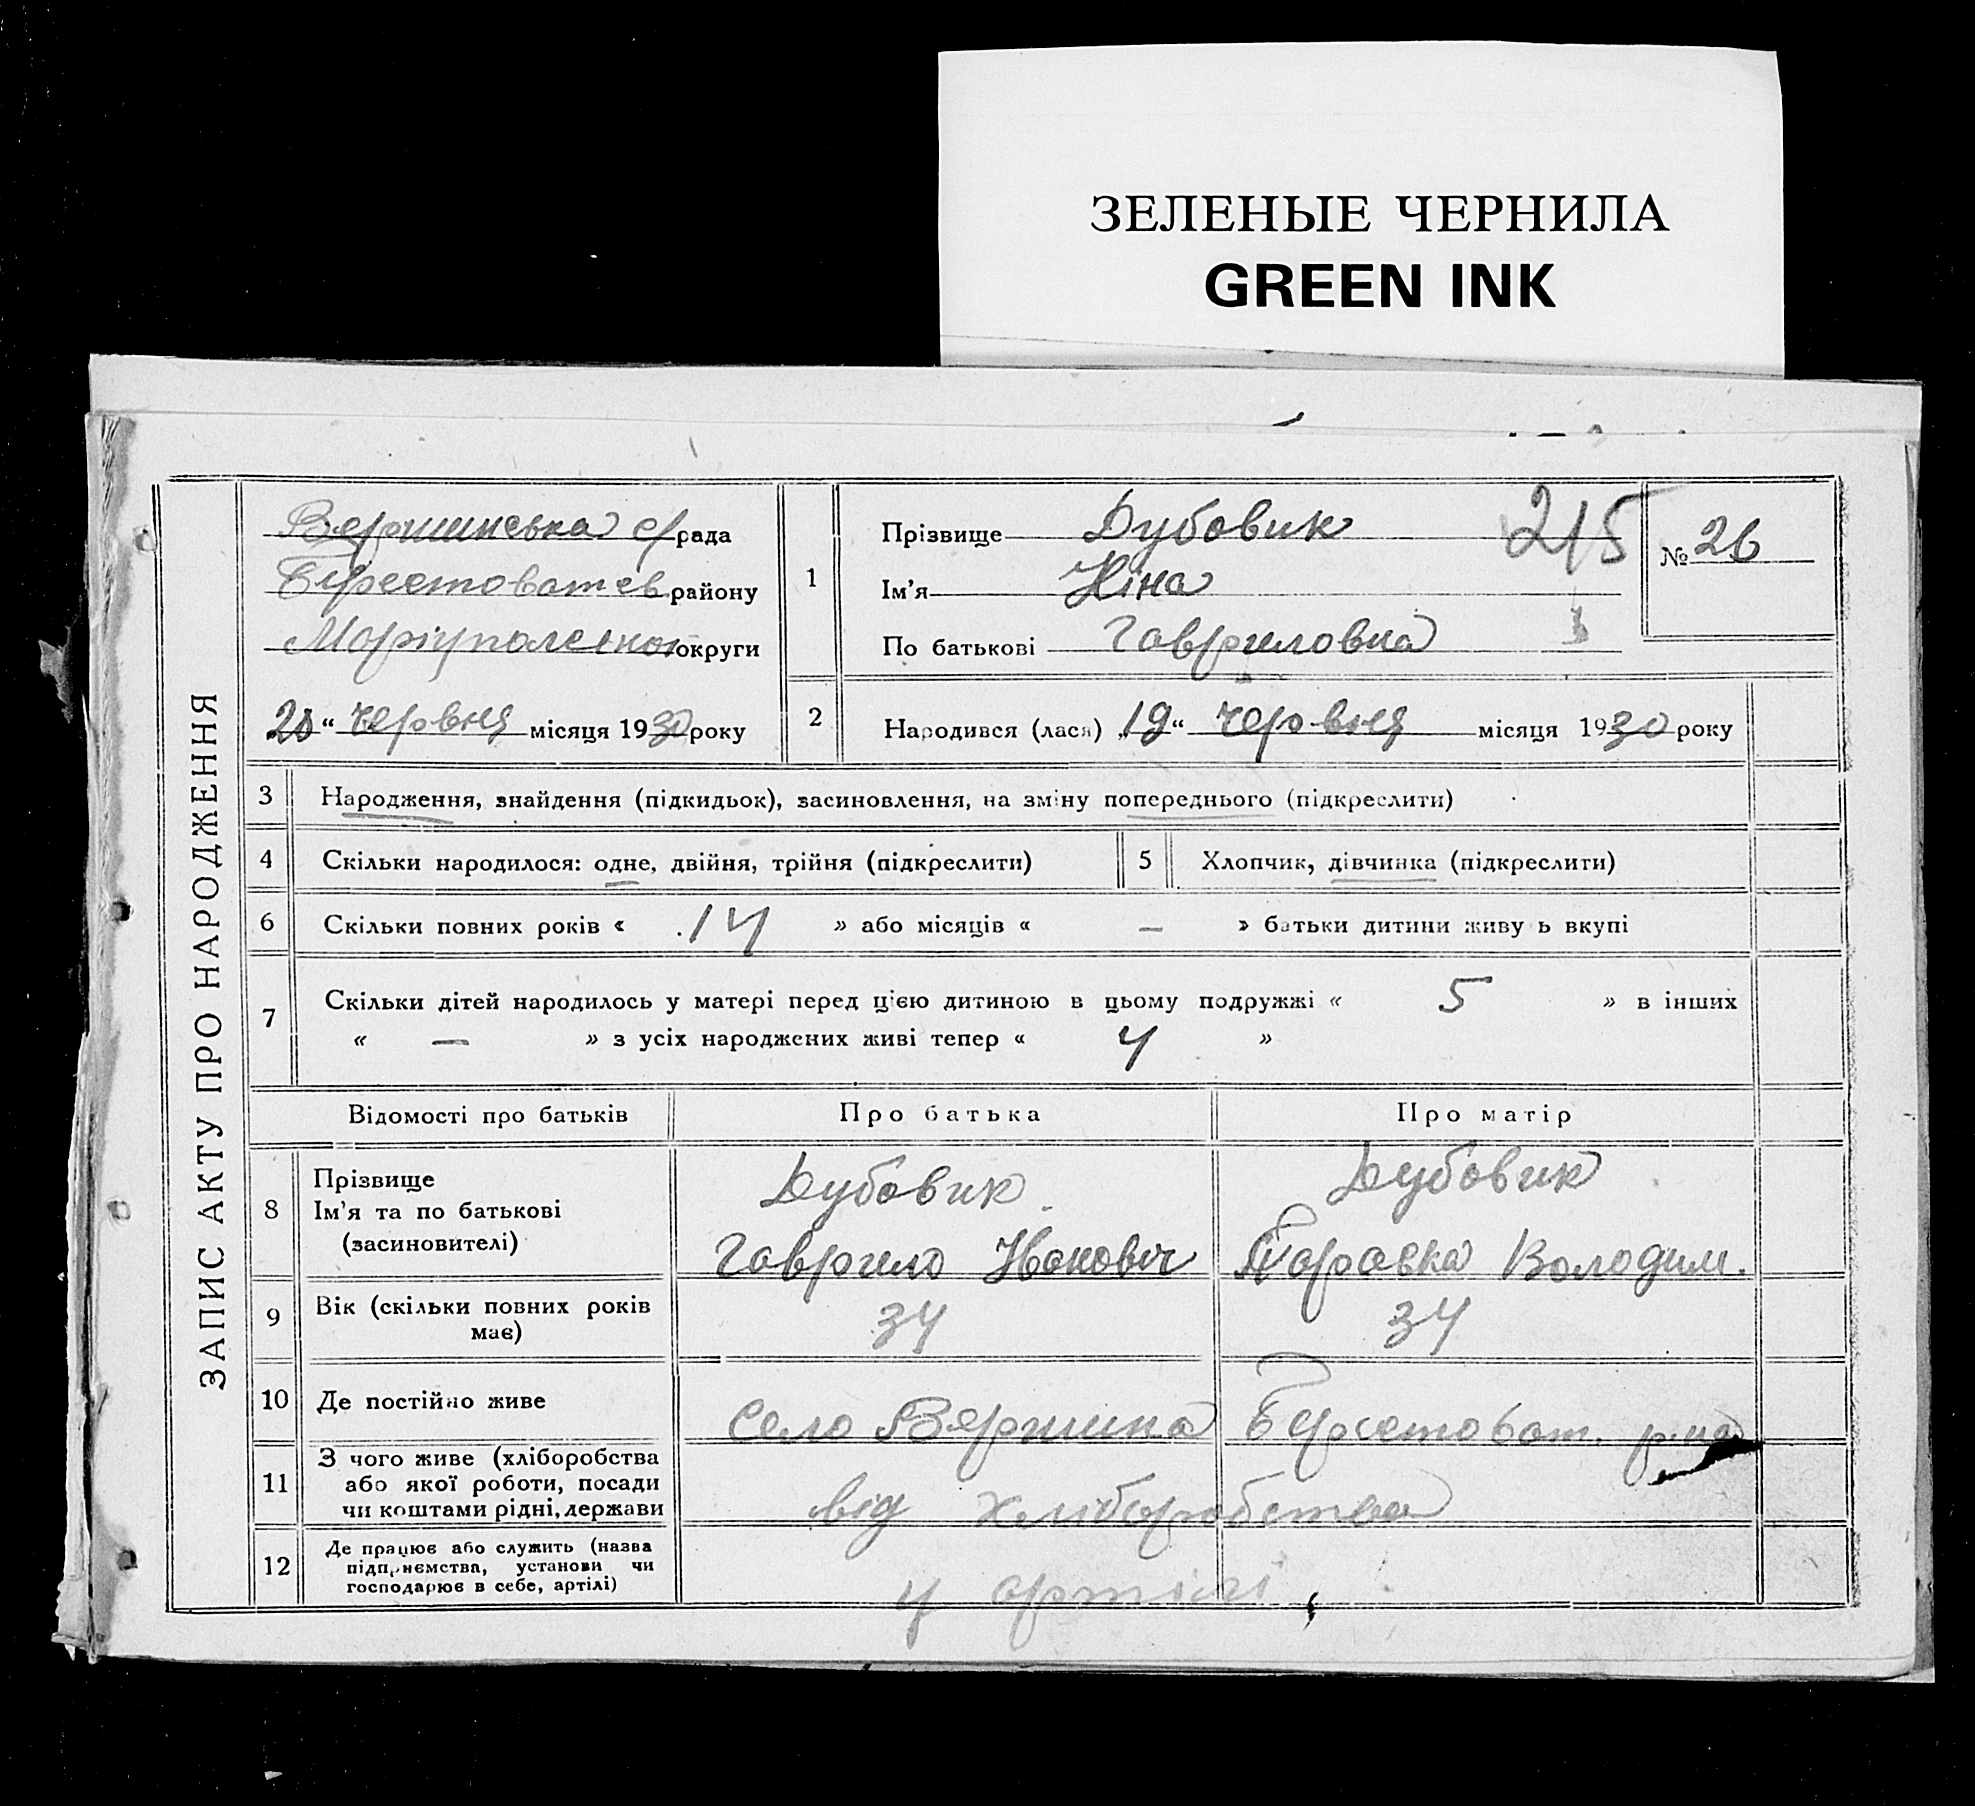 ЗЕЛЕНЫЕ ЧЕРНИЛА
GREEN INK
ЗАПИС АКТУ ПРО НАРОДЖЕННЯ
Вершинська с/рада
району
округи
20 “ червня місяця 1930 року
1
Прізвище Дубовик
215
Ім’я Ніна
По батькові Гавриловна
№ 26
2
Народився (лася) „19“ червня місяця 1930 року
3
Народження, знайдення (підкидьок), засиновлення, на зміну попереднього (підкреслити)
4
Скільки народилося: одне, двійня, трійня (підкреслити)
5
Хлопчик, дівчинка (підкреслити)
6
Скільки повних років « 14 » або місяців « — » батьки дитини живуть вкупі
7
Скільки дітей народилось у матері перед цією дитиною в цьому подружжі « 5 » в інших
« — » з усіх народжених живі тепер « 4 »
Відомості про батьків
Про батька
Про матір
8
Прізвище
Ім’я та по батькові
(засиновителі)
Дубовик
Гаврило Іванович
Дубовик
Володим.
9
Вік (скільки повних років
має)
34
34
10
Де постійно живе
село Вершина
Берестоват. р-на
11
З чого живе (хліборобства
або якої роботи, посади
чи коштами рідні, держави
від хліборобства
12
Де працює або служить (назва
підприємства, установи чи
господарює в себе, артілі)
у артілі